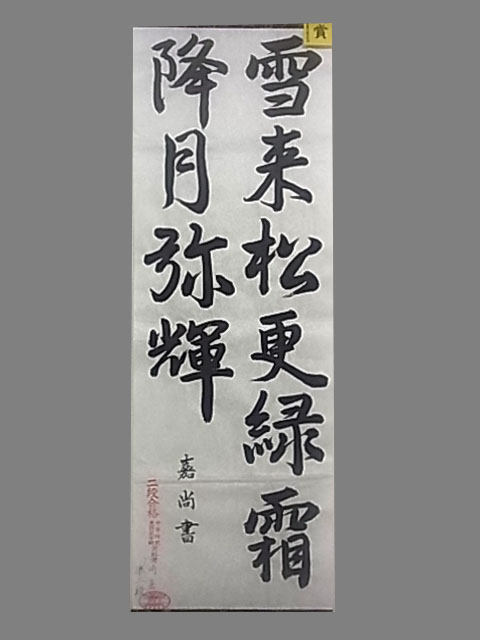 雪来松更緑霜
降月弥輝
嘉尚書
賞
二段合格